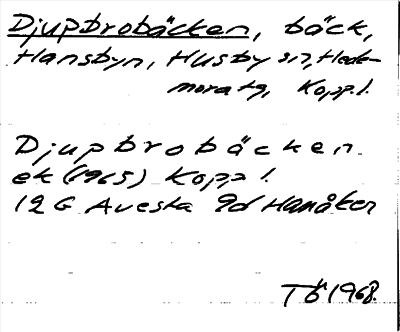 Djupbrobäcken, bäck,
Hansbyn, Husby sn, Hede-
mora tg, Kopp.l.
Djupbrobäcken
ek (1965) Kopp l.
12G Avesta 9d Hanåker
TÖ 1968.